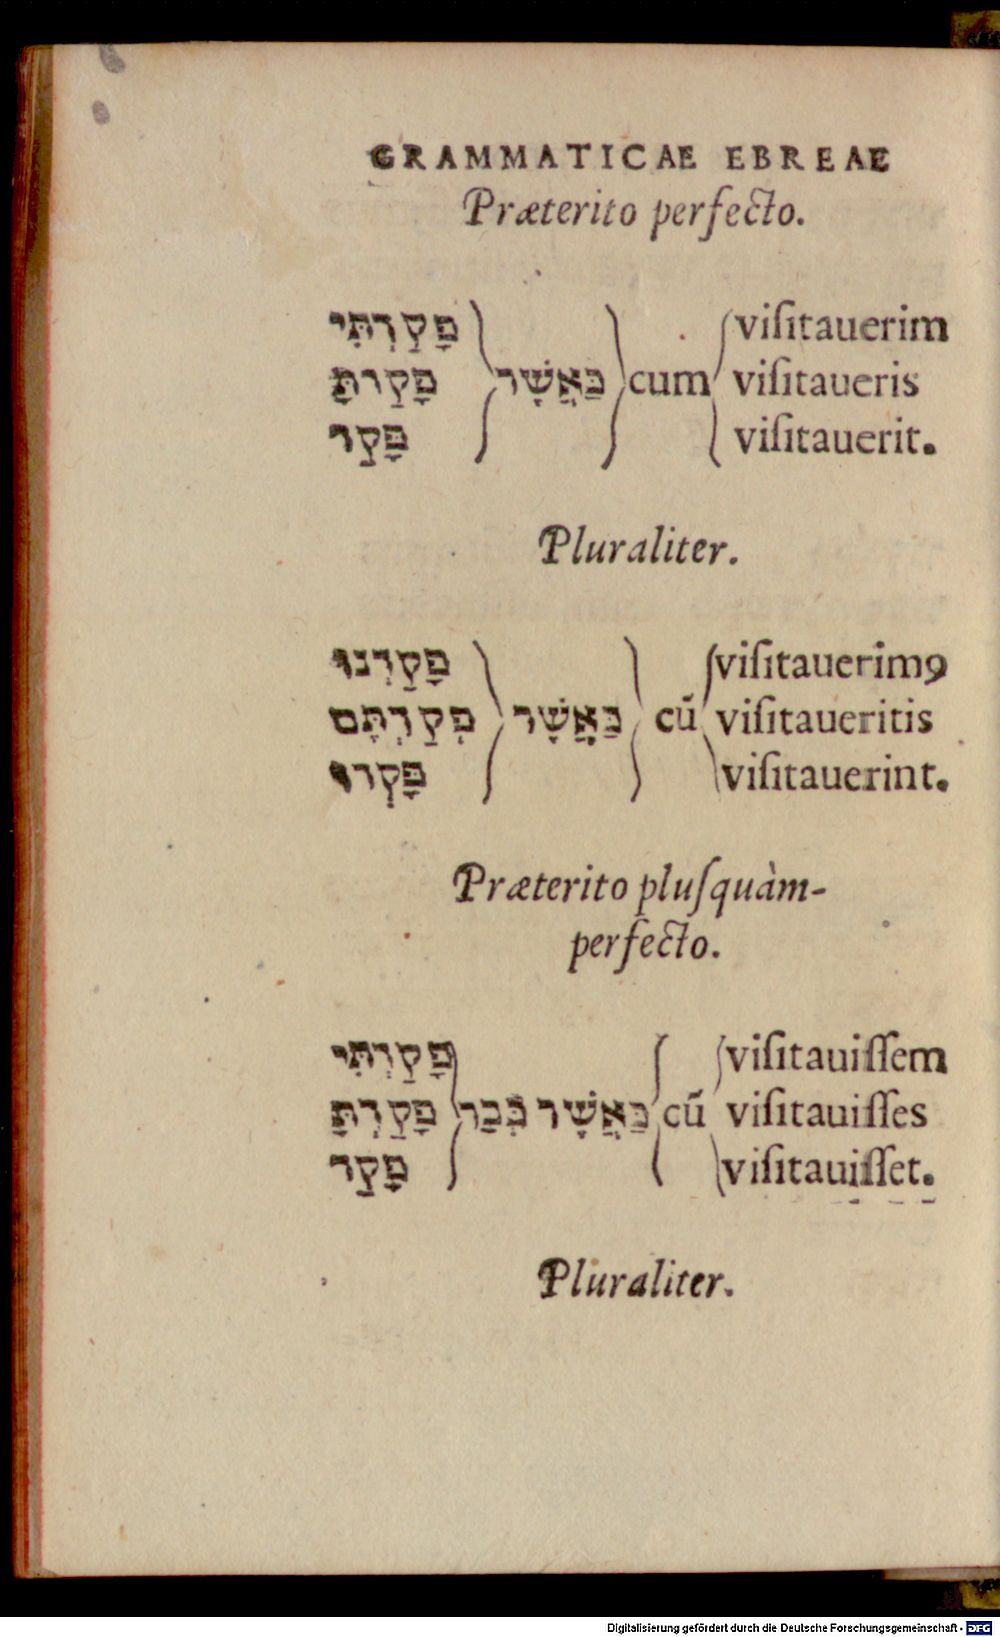 GRAMMATICAE EBREAE
Præterito perfecto.
פָּקַדְתִּי visitauerim
פָּקַדתָּ כַּאֲשֶׁר cum visitaueris
פָּקַד visitauerit.
Pluraliter.
פָּקַדְנוּ visitauerimꝰ
פְּקַדְתֶּם כַּאֲשֶׁר cū visitaueritis
פָּקְדוּ visitauerint.
Præterito plusquàm-
perfecto.
פָּקַדְתִּי visitauissem
פָּקַדְתָּ כַּאֲשֶׁר כְּבַר cū visitauisses
פָּקַד visitauisset.
Pluraliter.
Digitalisierung gefördert durch die Deutsche Forschungsgemeinschaft - DFG